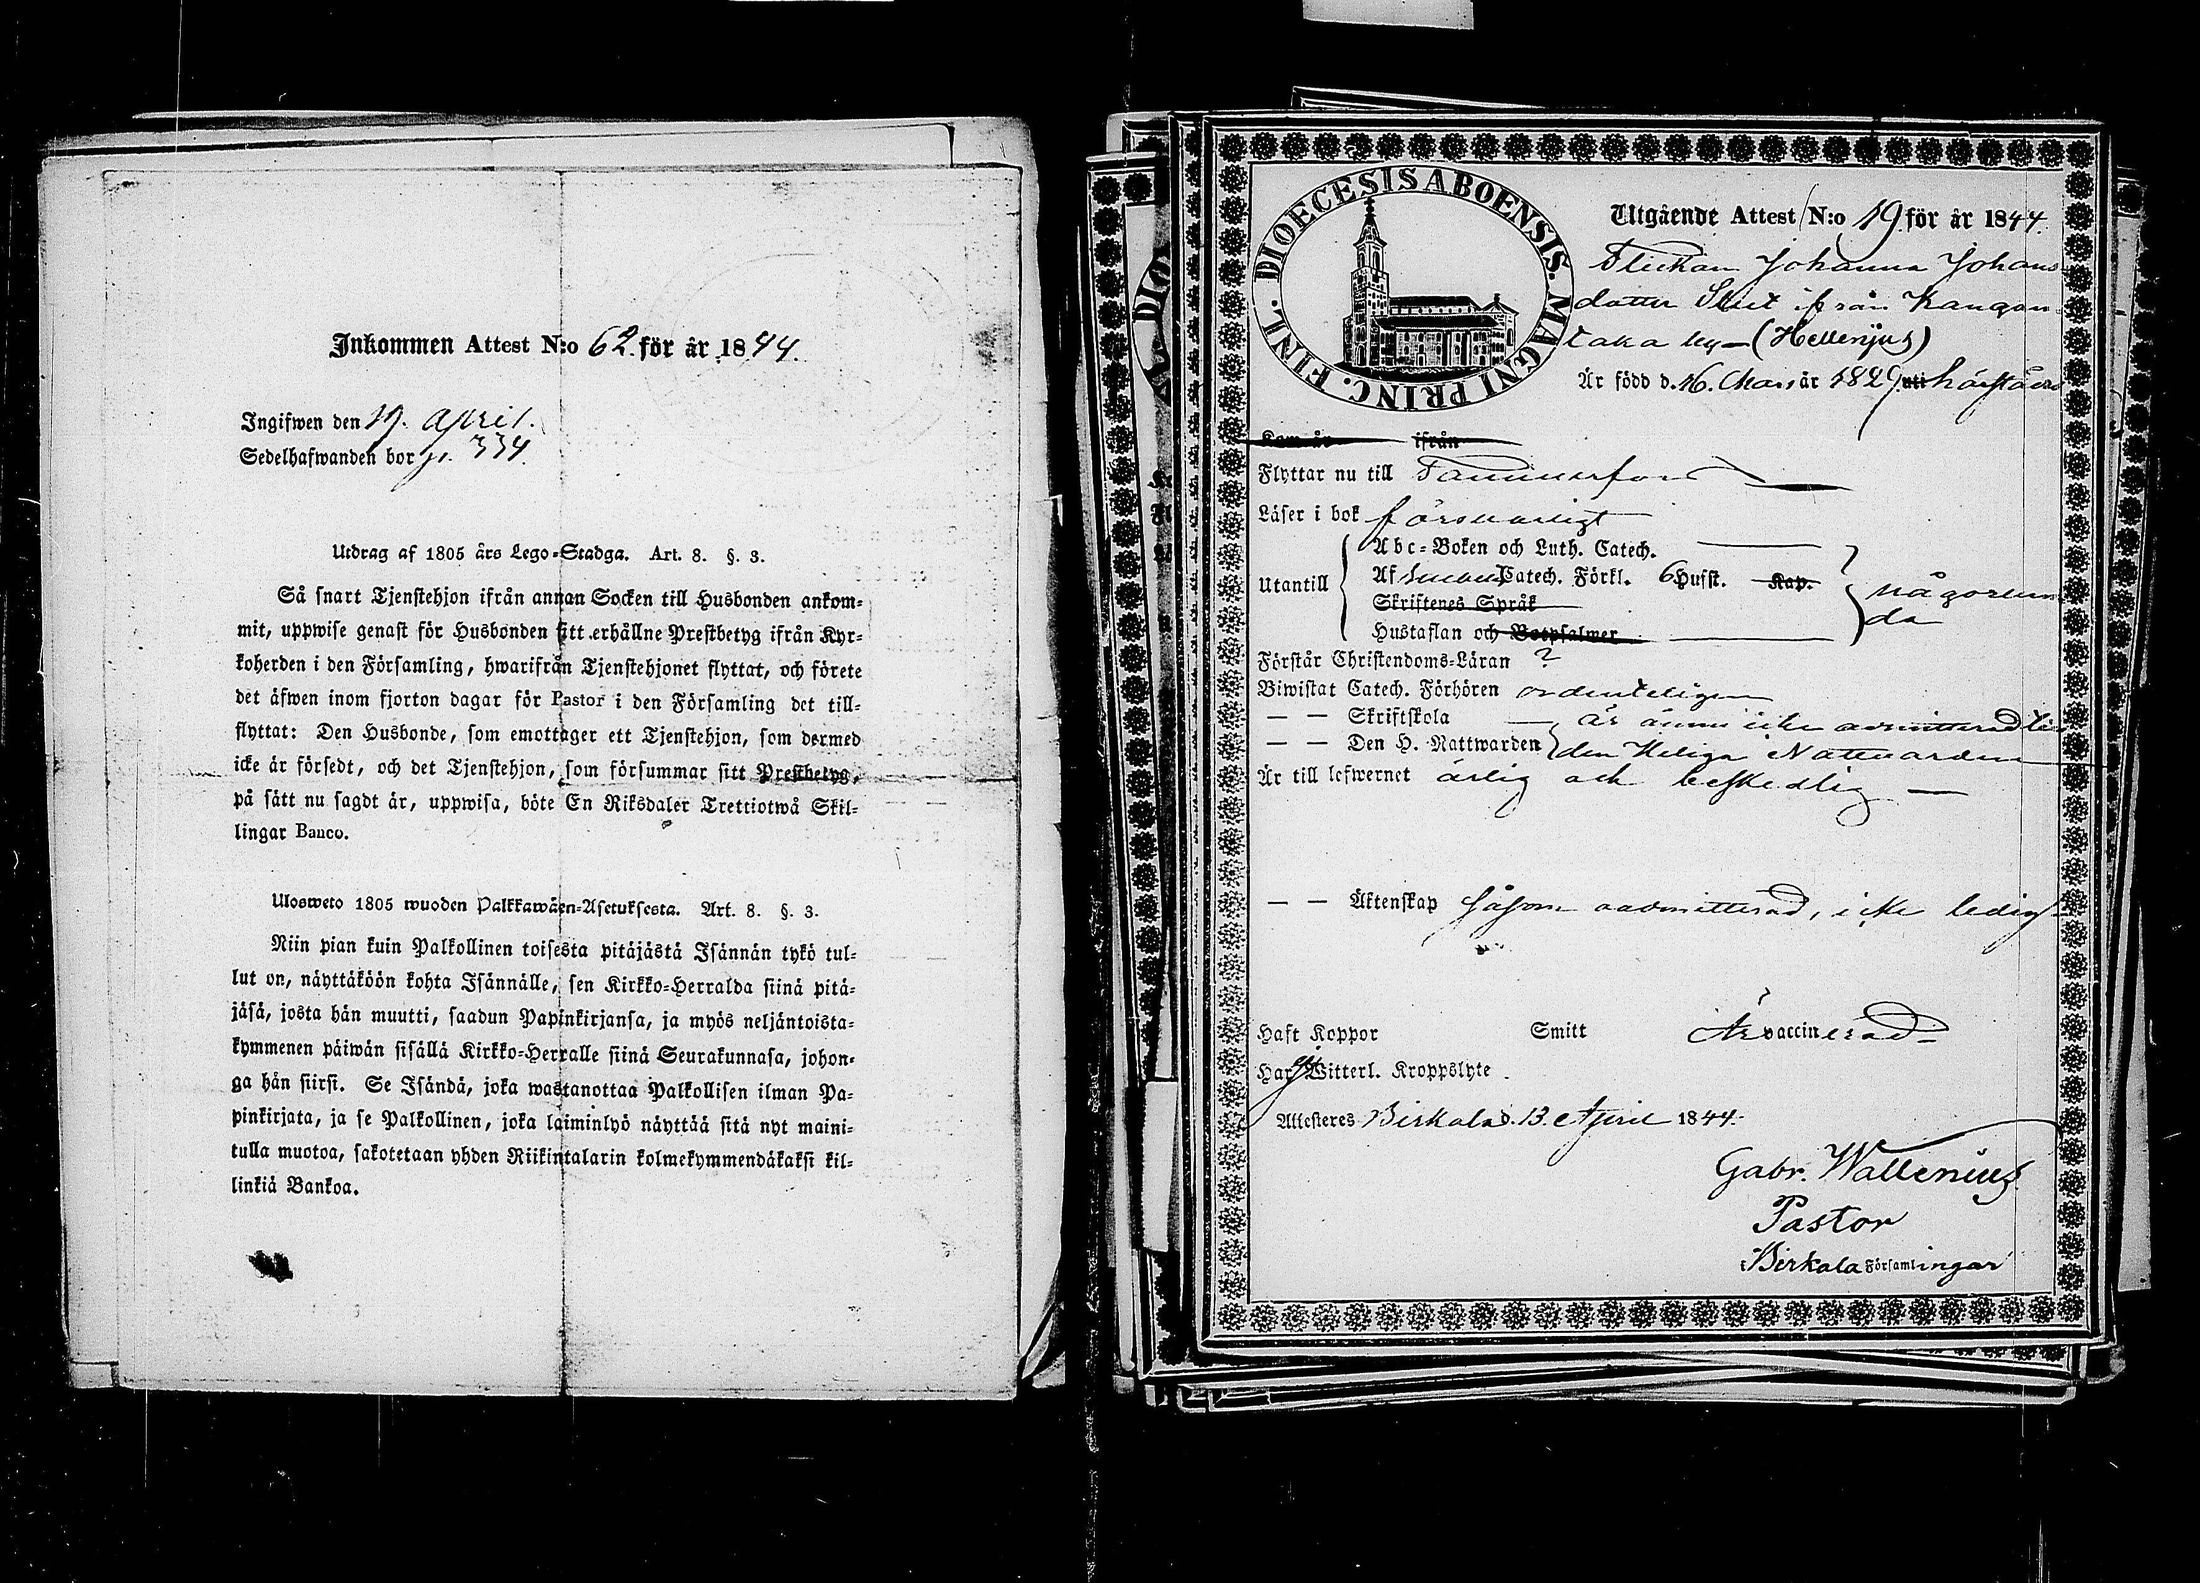 Inkommen Attest N:o 62. för år 1844.
Ingifwen den 19. April.
Sedelhafwanden bor p. 334.
Utdrag af 1805 års Lego-Stadga. Art. 8. §. 3.
Så snart Tjenstehjon ifrån annan Socken till Husbonden ankom-
mit, uppwise genast för Husbonden sitt erhållne Prestbetyg ifrån Kyr-
koherden i den Församling, hwarifrån Tjenstehjonet flyttat, och förete
det äfwen inom fjorton dagar för Pastor i den Församling det till-
flyttat: Den Husbonde, som emottager ett Tjenstehjon, som dermed
icke är försedt, och det Tjenstehjon, som försummar sitt Prestbetyg,
på sätt nu sagdt är, uppwisa, böte En Riksdaler Trettiotwå Skil-
lingar Banco.
Ulosweto 1805 wuoden Palkkawäen-Asetuksesta. Art. 8. §. 3.
Niin pian kuin Palkollinen toisesta pitäjästä Isännän tykö tul-
lut on, näyttäköön kohta Isännälle, sen Kirkko-Herralda siinä pitä-
jäsä, josta hän muutti, saadun Papinkirjansa, ja myös neljäntoista-
kymmenen päiwän sisällä Kirkko-Herralle siinä Seurakunnasa, johon-
ga hän siirsi. Se Isändä, joka wastanottaa Palkollisen ilman Pa-
pinkirjata, ja se Palkollinen, joka laiminlyö näyttää sitä nyt maini-
tulla muotoa, sakotetaan yhden Riikintalarin kolmekymmendäkaksi kil-
linkiä Bankoa.
DIOECESIS ABOENSIS. MAGNI PRINC. FINL.
Utgående Attest N:o 19 för år 1844.
Flickan Johanna Johans
dotter Slut ifrån Kangan
taka by - (Hellenjus)
Är född d. 16. Mars år 1829 uti härstädes
Kom år ifrån
Flyttar nu till Tammerfors
Läser i bok försvarligt
Abc-Boken och Luth. Catech.
Utantill Af Catech. Förkl. 6 Husst. Kap. någorlun
Skriftenes Språk da
Hustaflan och Botpsalmer
Förstår Christendoms-Läran ?
Biwistat Catech. Förhören ordenteligen
— — Skriftskola är ännu icke admitterad till
— — Den H. Nattwarden den Heliga Nattvarden
Är till lefwernet ärlig och beskedlig
— — Äktenskap såsom oadmitterad, icke ledig
Haft Koppor Smitt Är vaccinerad
Har ej Witterl. Kroppslyte
Attesteres Birkala d. 13. April 1844.
Gabr. Wallenius
Pastor
i Birkala Församlingar